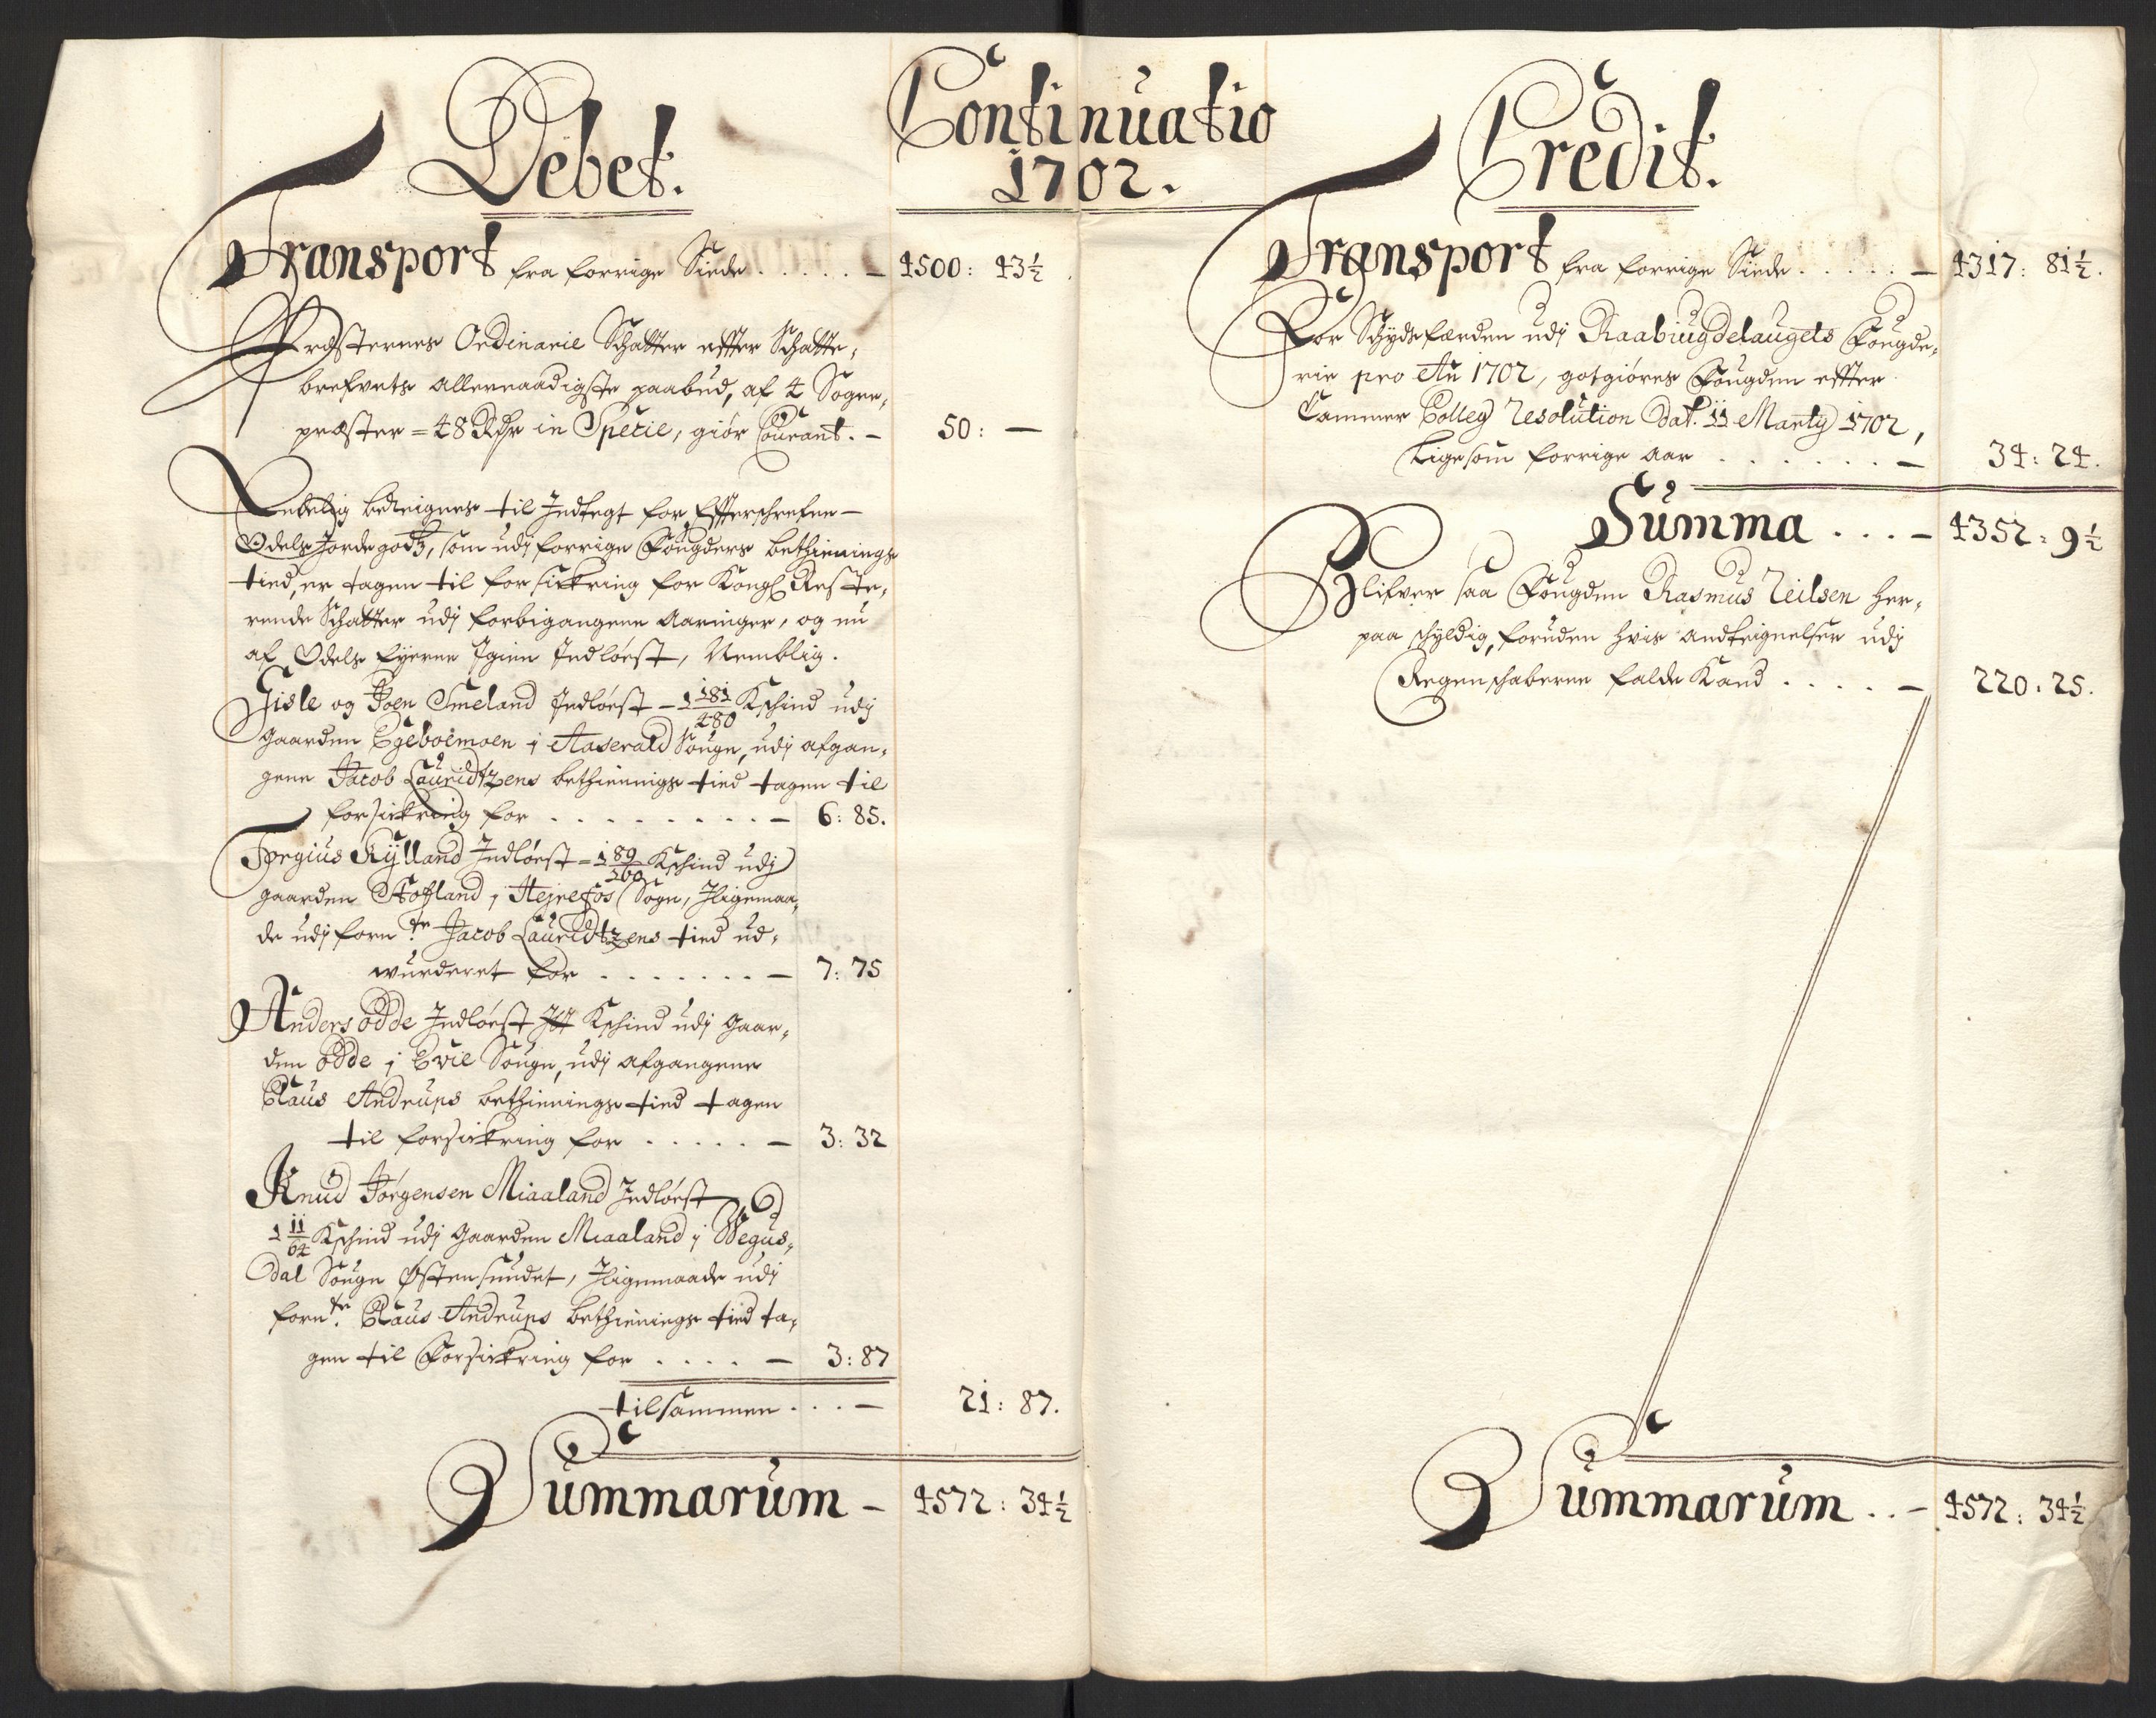 Continuatio
1702.
Debet.
Transport fra forrige Siede . . . . . — 4500: 43½
Præsternes Ordinarie Schatter effter Schatte,
brefvets allernaadigste paabud, af 4 Sogne,
præster = 48 Rdr in Specie, giör Courant. — 50: —
Endelig beteignes til Indtegt for Efterschrefne
Odels Jordegodtz, som udj forrige Fougders bethienings
tied, er tagen til forsickring for Kongl Reste,
rende Schatter udj forbigangene Aaringer, og nu
af Odels Eyerne Igien Indlöest, Nemblig.
Gisle og Joen Smeland Indlöest — 1 181/480 Kschind udj
gaarden Egeboemoen i Aaserald Sougn, udj afgan,
gene Jacob Lauridtzens bethienings tied tagen til
forsickring for . . . . . . . . . — 6: 85.
Torgius Kylland Indlöest = 1 89/160 Kschind udj
gaarden Hofland i Hejrefos Sogn, Iligemaa,
de udj fornte Jacob Lauridtzens tied ud,
wurderet for . . . . . . . — 7: 75
Anders odde Indlöest Kschind udj Gaar,
den odde i Evie Sougn, udj afgangene
Claus Andrups bethienings tied tagen
til forsickring for . . . . . — 3: 32
Knud Jörgensen Miaaland Indlöest
1 11/64 Kschind udj gaarden Miaaland i Wegus,
dal Sougn Østensundet, Iligemaade udj
fornte Claus Andrups bethienings tied ta,
gen til Forsickring for . . . . — 3: 87
tilsammen . . . — 21: 87.
Summarum — 4572: 34½
Credit.
Transport fra forrige Siede . . . . . — 4317: 81½.
For Schydsfærden udj Raabiugdelaugets Fougde,
rie pro Ao 1702, gotgiöres Fougden effter
Cammer Colleg Resolution Dat. 11 Marty 1702,
ligesom forrige Aar . . . . . . . — 34: 24.
Summa . . . — 4352: 9½
Blifver saa Fougden Rasmus Neilsen her,
paa schyldig, foruden hvis Andteignelser udj
Regenschaberne falde Kand . . . . — 220: 25.
Summarum . . — 4572: 34½